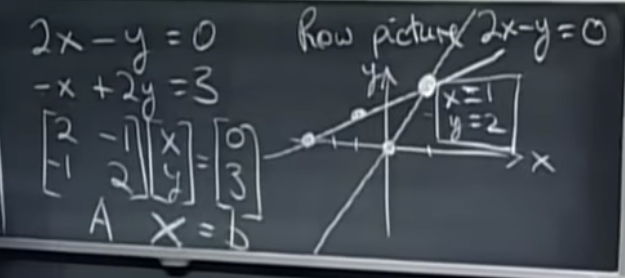 2x - y = 0
-x + 2y = 3
[2 -1] [x] = [0]
[-1 2] [y] = [3]
A X = b
Row picture 2x-y=0
y
x=1
y=2
x